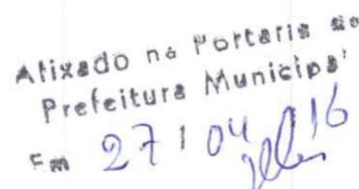 Afixado na Portaria da
Prefeitura Municipal
Em 27 / 04 / 16